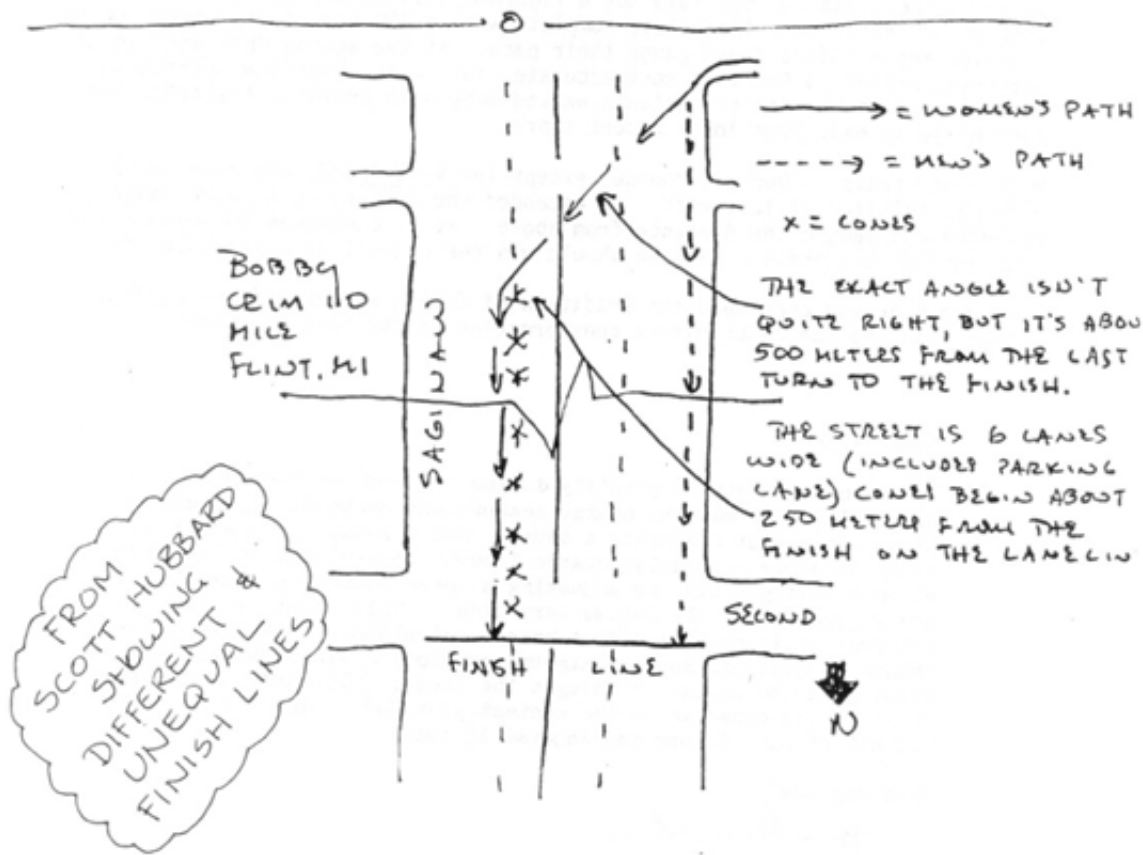 → = WOMEN'S PATH
----→ = MEN'S PATH
X = CONES
BOBBY
CRIM 10
MILE
FLINT, MI
SAGINAW
THE EXACT ANGLE ISN'T
QUITE RIGHT, BUT IT'S ABOU
500 METERS FROM THE LAST
TURN TO THE FINISH.
THE STREET IS 6 LANES
WIDE (INCLUDES PARKING
LANE) CONES BEGIN ABOUT
250 METERS FROM THE
FINISH ON THE LANE LIN
SECOND
FINISH LINE
N
FROM
SCOTT HUBBARD
SHOWING
DIFFERENT &
UNEQUAL
FINISH LINES